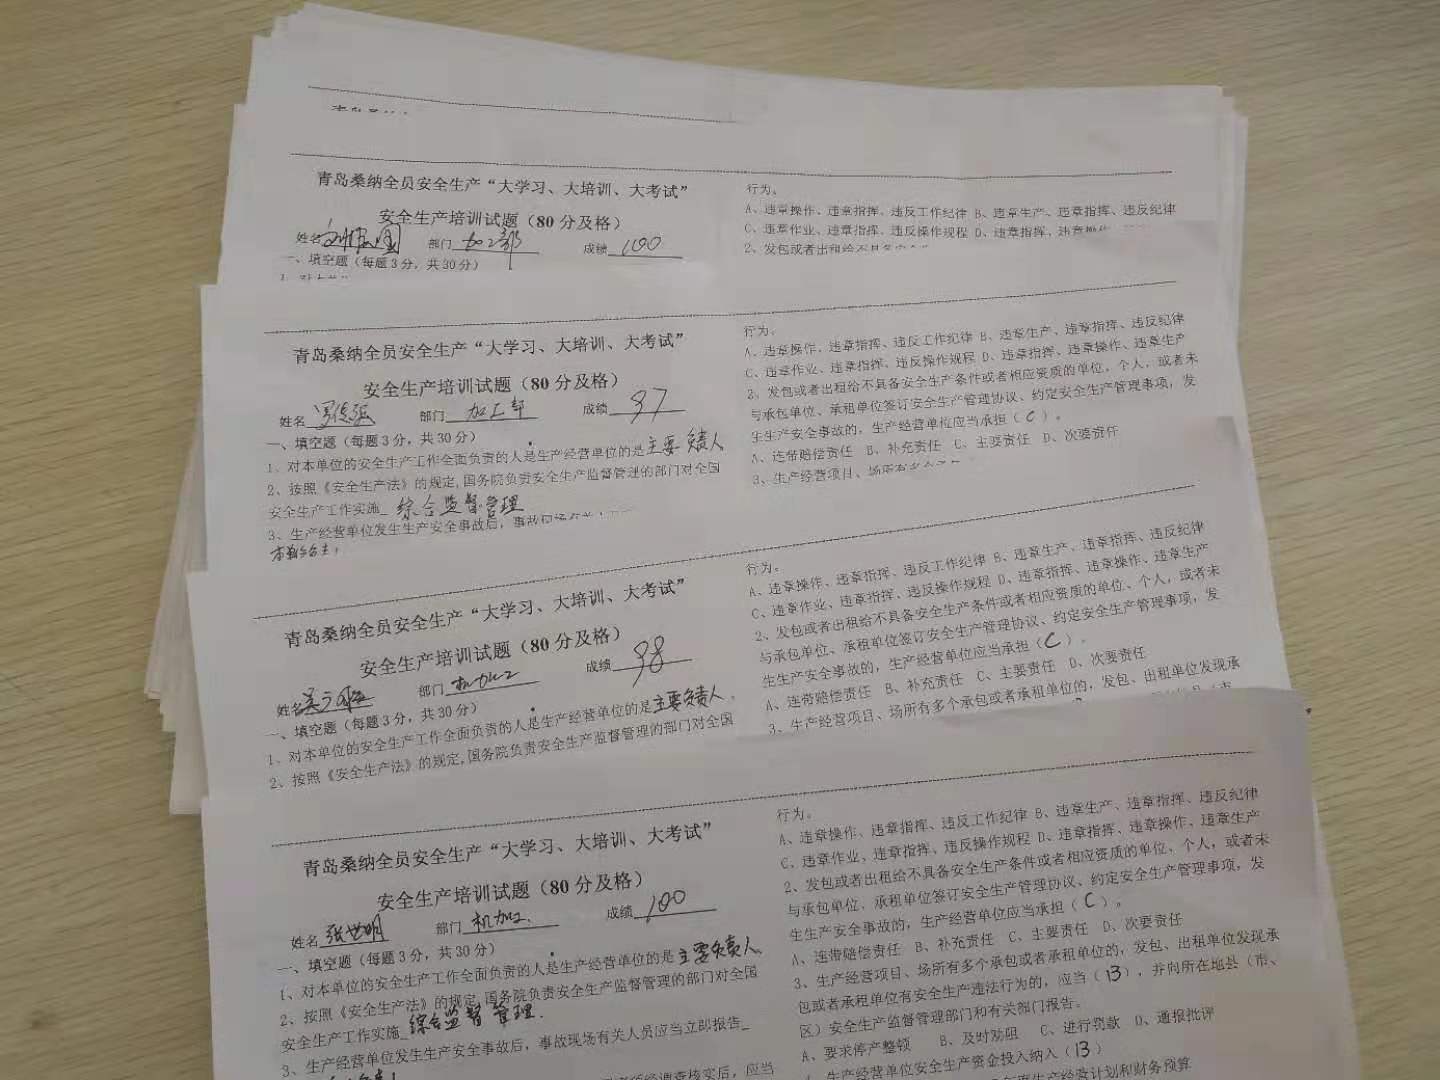 青岛桑纳全员安全生产“大学习、大培训、大考试”
安全生产培训试题（80分及格）
姓名 部门 加工部 成绩 100
一、填空题（每题3分，共30分）
行为。
A、违章操作、违章指挥、违反工作纪律 B、违章生产、违章指挥、违反纪律
C、违章作业、违章指挥、违反操作规程 D、违章指挥、违章操作、
2、发包或者出租给不具备安全
青岛桑纳全员安全生产“大学习、大培训、大考试”
安全生产培训试题（80分及格）
姓名 部门 加工部 成绩 97
一、填空题（每题3分，共30分）
1、对本单位的安全生产工作全面负责的人是生产经营单位的是 主要负责人
2、按照《安全生产法》的规定,国务院负责安全生产监督管理的部门对全国
安全生产工作实施 综合监督管理
3、生产经营单位发生生产安全事故后，事故现场有关
行为。
A、违章操作、违章指挥、违反工作纪律 B、违章生产、违章指挥、违反纪律
C、违章作业、违章指挥、违反操作规程 D、违章指挥、违章操作、违章生产
2、发包或者出租给不具备安全生产条件或者相应资质的单位，个人，或者未
与承包单位、承租单位签订安全生产管理协议、约定安全生产管理事项，发
生生产安全事故的，生产经营单位应当承担（C）。
A、连带赔偿责任 B、补充责任 C、主要责任 D、次要责任
3、生产经营项目、场所有多个
青岛桑纳全员安全生产“大学习、大培训、大考试”
安全生产培训试题（80分及格）
姓名 部门 机加工 成绩 98
一、填空题（每题3分，共30分）
1、对本单位的安全生产工作全面负责的人是生产经营单位的是 主要负责人.
2、按照《安全生产法》的规定,国务院负责安全生产监督管理的部门对全国
行为。
A、违章操作、违章指挥、违反工作纪律 B、违章生产、违章指挥、违反纪律
C、违章作业、违章指挥、违反操作规程 D、违章指挥、违章操作、违章生产
2、发包或者出租给不具备安全生产条件或者相应资质的单位、个人，或者未
与承包单位、承租单位签订安全生产管理协议、约定安全生产管理事项，发
生生产安全事故的，生产经营单位应当承担（C）。
A、连带赔偿责任 B、补充责任 C、主要责任 D、次要责任
3、生产经营项目、场所有多个承包或者承租单位的，发包、出租单位发现承
青岛桑纳全员安全生产“大学习、大培训、大考试”
安全生产培训试题（80分及格）
姓名 张世明 部门 机加工. 成绩 100
一、填空题（每题3分，共30分）
1、对本单位的安全生产工作全面负责的人是生产经营单位的是 主要负责人
2、按照《安全生产法》的规定,国务院负责安全生产监督管理的部门对全国
安全生产工作实施 综合监督管理.
3、生产经营单位发生生产安全事故后，事故现场有关人员应当立即报告
调查核实后，应当
行为。
A、违章操作、违章指挥、违反工作纪律 B、违章生产、违章指挥、违反纪律
C、违章作业、违章指挥、违反操作规程 D、违章指挥、违章操作、违章生产
2、发包或者出租给不具备安全生产条件或者相应资质的单位、个人，或者未
与承包单位、承租单位签订安全生产管理协议、约定安全生产管理事项，发
生生产安全事故的，生产经营单位应当承担（C）。
A、连带赔偿责任 B、补充责任 C、主要责任 D、次要责任
3、生产经营项目、场所有多个承包或者承租单位的，发包、出租单位发现承
包或者承租单位有安全生产违法行为的，应当（B），并向所在地县（市、
区）安全生产监督管理部门和有关部门报告。
A、要求停产整顿 B、及时劝阻 C、进行罚款 D、通报批评
生产经营单位安全生产资金投入纳入（B）
生产经营计划和财务预算